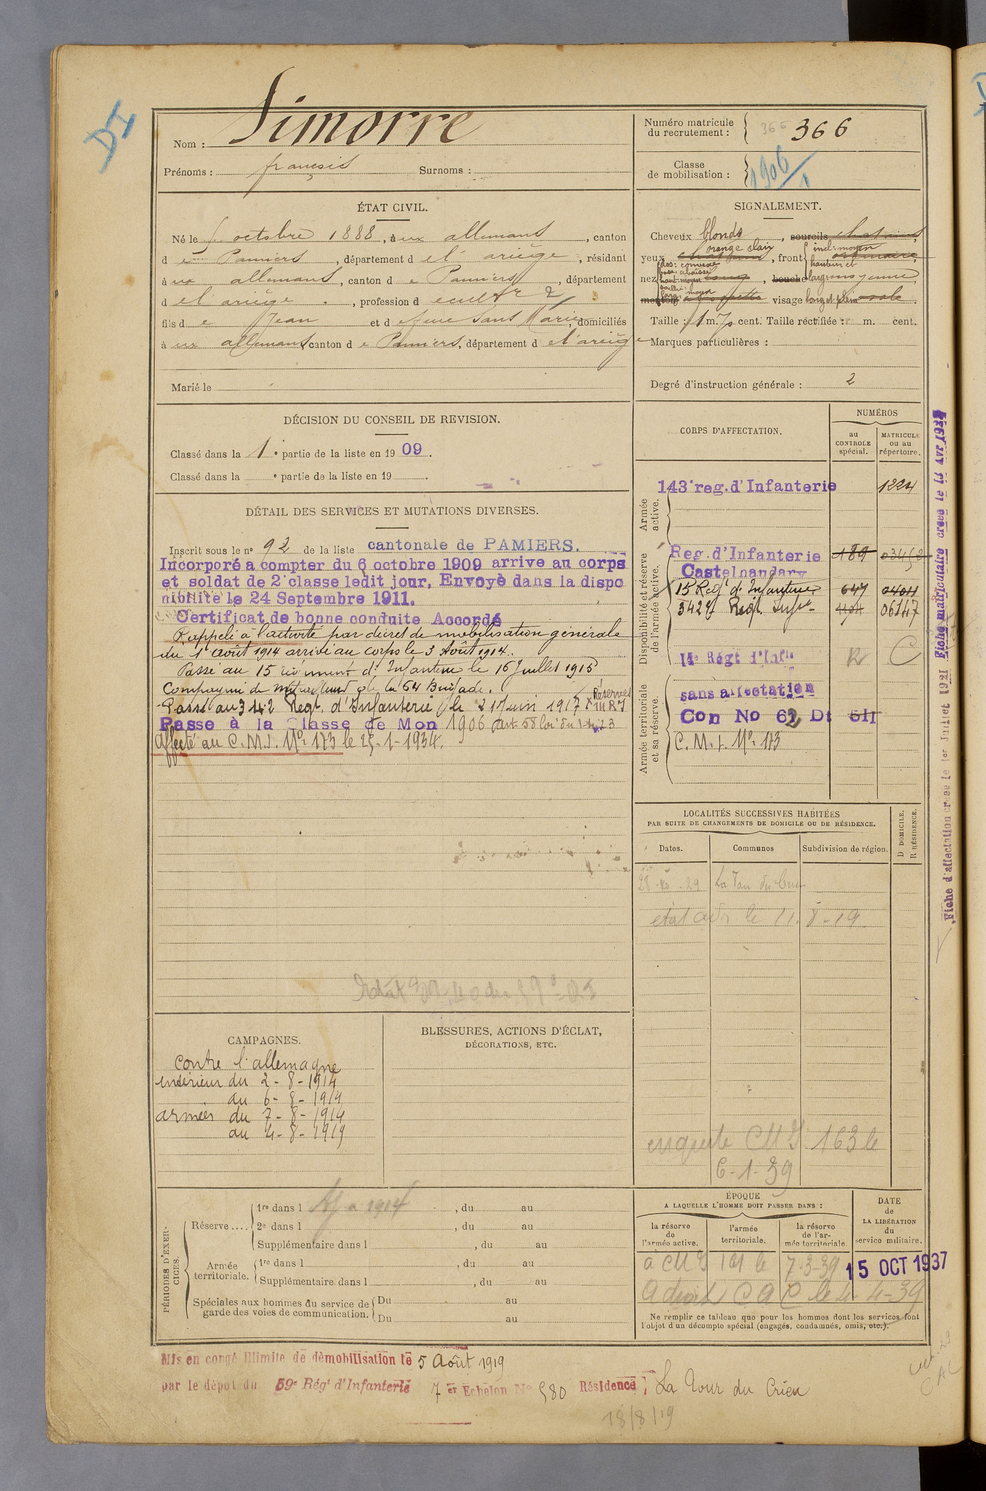 DI
Nom : Simorre
Prénoms : françois Surnoms :
Numéro matricule du recrutement : 366 366
Classe de mobilisation : 1906/1
ÉTAT CIVIL.
Né le octobre 1888, à ux allemans, canton
d e Pamiers, département d el ariège, résidant
à ux allemans, canton d e Pamiers, département
d el ariège, profession d e cultr 2
fils d e Jean et d e feue Sans Marie, domiciliés
à ux allemans canton d e Pamiers, département d el ariège
Marié le
SIGNALEMENT.
Cheveux blonds, sourcils chatains
yeux orange clair, front incl: moyen
nez, bouche larg moyenne
menton, visage long et plein ovale
Taille : 1 m. 70 cent. Taille rectifiée : m. cent.
Marques particulières :
Degré d'instruction générale : 2
DÉCISION DU CONSEIL DE REVISION.
Classé dans la 1e partie de la liste en 1909.
Classé dans la e partie de la liste en 19
DÉTAIL DES SERVICES ET MUTATIONS DIVERSES.
Inscrit sous le n° 92 de la liste cantonale de PAMIERS.
Incorporé a compter du 6 octobre 1909 arrive au corps
et soldat de 2e classe ledit jour. Envoyé dans la dispo
nibilite le 24 Septembre 1911.
Certificat de bonne conduite Accordé
Rappelé à l'activité par décret de mobilisation générale
du 1er Août 1914 arrivé au corps le 3 Août 1914.
Passé au 15 régiment d'Infanterie le 16 Juillet 1915
Compagnie de mitrailleuses de la 64 Brigade.
Passé au 342 Regt. d'Infanterie le 21 Juin 1917
Passe à la Classe de Mon 1906 art 58 loi du 1-4-23
Affecté au C.M.I. No 173 le 25-1-1934.
CORPS D'AFFECTATION.
NUMÉROS
au CONTROLE spécial.
MATRICULE ou au répertoire.
Armée active.
143e reg. d'Infanterie 1224
Disponibilité et réserve de l'armée active.
Reg. d'Infanterie 189
Castelnaudary
15 Regt d'Infanterie 647
342e Regt Infie 06147
Regt d'Infie R C
Armée territoriale et sa réserve
sans affectation
Con No 62 Dt 511
C.M.I. No 173
Fiche matriculaire
Fiche d'affectation créée le 1er Juillet 1921
LOCALITÉS SUCCESSIVES HABITÉES
PAR SUITE DE CHANGEMENTS DE DOMICILE OU DE RÉSIDENCE.
Dates. Communes Subdivision de région. D DOMICILE. R RÉSIDENCE.
La Tour du Crieu
enquete CMI 163 le
6-1-39
CAMPAGNES.
Contre l'allemagne
intérieur du 2-8-1914
au 6-8-1914
armées du 7-8-1914
au 4-8-1919
BLESSURES, ACTIONS D'ÉCLAT,
DÉCORATIONS, ETC.
PÉRIODES D'EXERCICES.
Réserve .... 1re dans l , du au
2e dans l , du au
Supplémentaire dans l , du au
Armée territoriale. 1re dans l , du au
Supplémentaire dans l , du au
Spéciales aux hommes du service de garde des voies de communication. Du au
Du au
ÉPOQUE
A LAQUELLE L'HOMME DOIT PASSER DANS :
la réserve de l'armée active.
l'armée territoriale.
la réserve de l'armée territoriale.
DATE DE LA LIBÉRATION du service militaire.
7-3-39
15 OCT 1937
4-39
Ne remplir ce tableau que pour les hommes dont les services font
l'objet d'un décompte spécial (engagés, condamnés, omis, etc.).
Mis en congé illimité de démobilisation le 5 Août 1919
par le dépot du 59e Régt d'Infanterie 7er Echelon No 580 Résidence : La Tour du Crieu
18/8/19